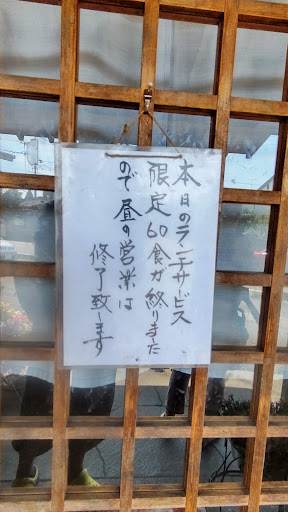 本日のランチサービス
限定60食が終りました
ので昼の営業は
修了致します